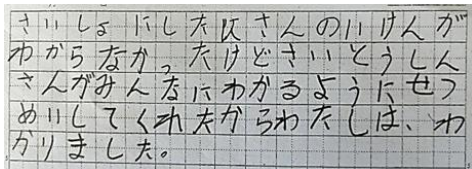 さいしょにしたにさんのいけんが
わからなかったけどさいとうしん
さんがみんなにわかるようにせつ
めいしてくれたからわたしは、わ
かりました。